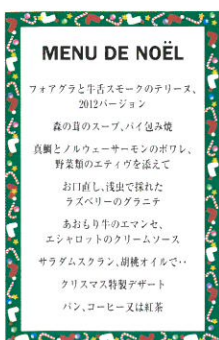 MENU DE NOËL
フォアグラと牛舌スモークのテリーヌ、
2012バージョン
森の茸のスープ、パイ包み焼
真鯛とノルウェーサーモンのポワレ、
野菜類のエティヴを添えて
お口直し、浅虫で採れた
ラズベリーのグラニテ
あおもり牛のエマンセ、
エシャロットのクリームソース
サラダムスクラン、胡桃オイルで‥
クリスマス特製デザート
パン、コーヒー又は紅茶